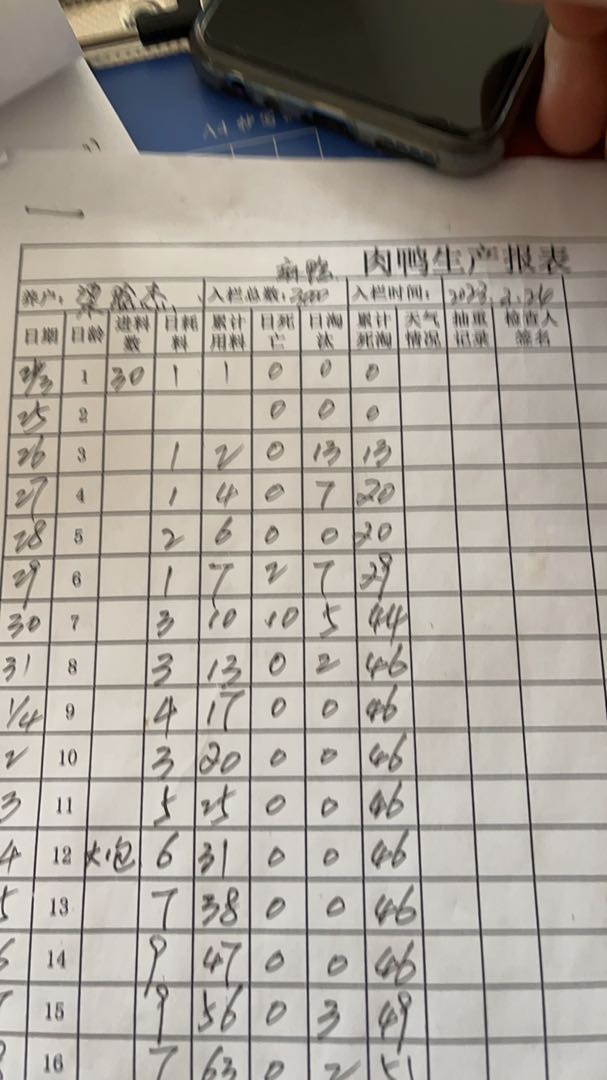 A4
肉鸭生产报表
养户： 入栏总数：3000 入栏时间：2023.2.24
日期 日龄 进料数 日耗料 累计用料 日死亡 日淘汰 累计死淘 天气情况 抽重记录 检查人签名
24/3 1 30 1 1 0 0 0
25 2 0 0 0
26 3 1 2 0 13 13
27 4 1 4 0 7 20
28 5 2 6 0 0 20
29 6 1 7 2 7 29
30 7 3 10 10 5 44
31 8 3 13 0 2 46
1/4 9 4 17 0 0 46
2 10 3 20 0 0 46
3 11 5 25 0 0 46
4 12 大炮 6 31 0 0 46
5 13 7 38 0 0 46
6 14 9 47 0 0 46
7 15 9 56 0 3 49
16 7 63 0 2 51